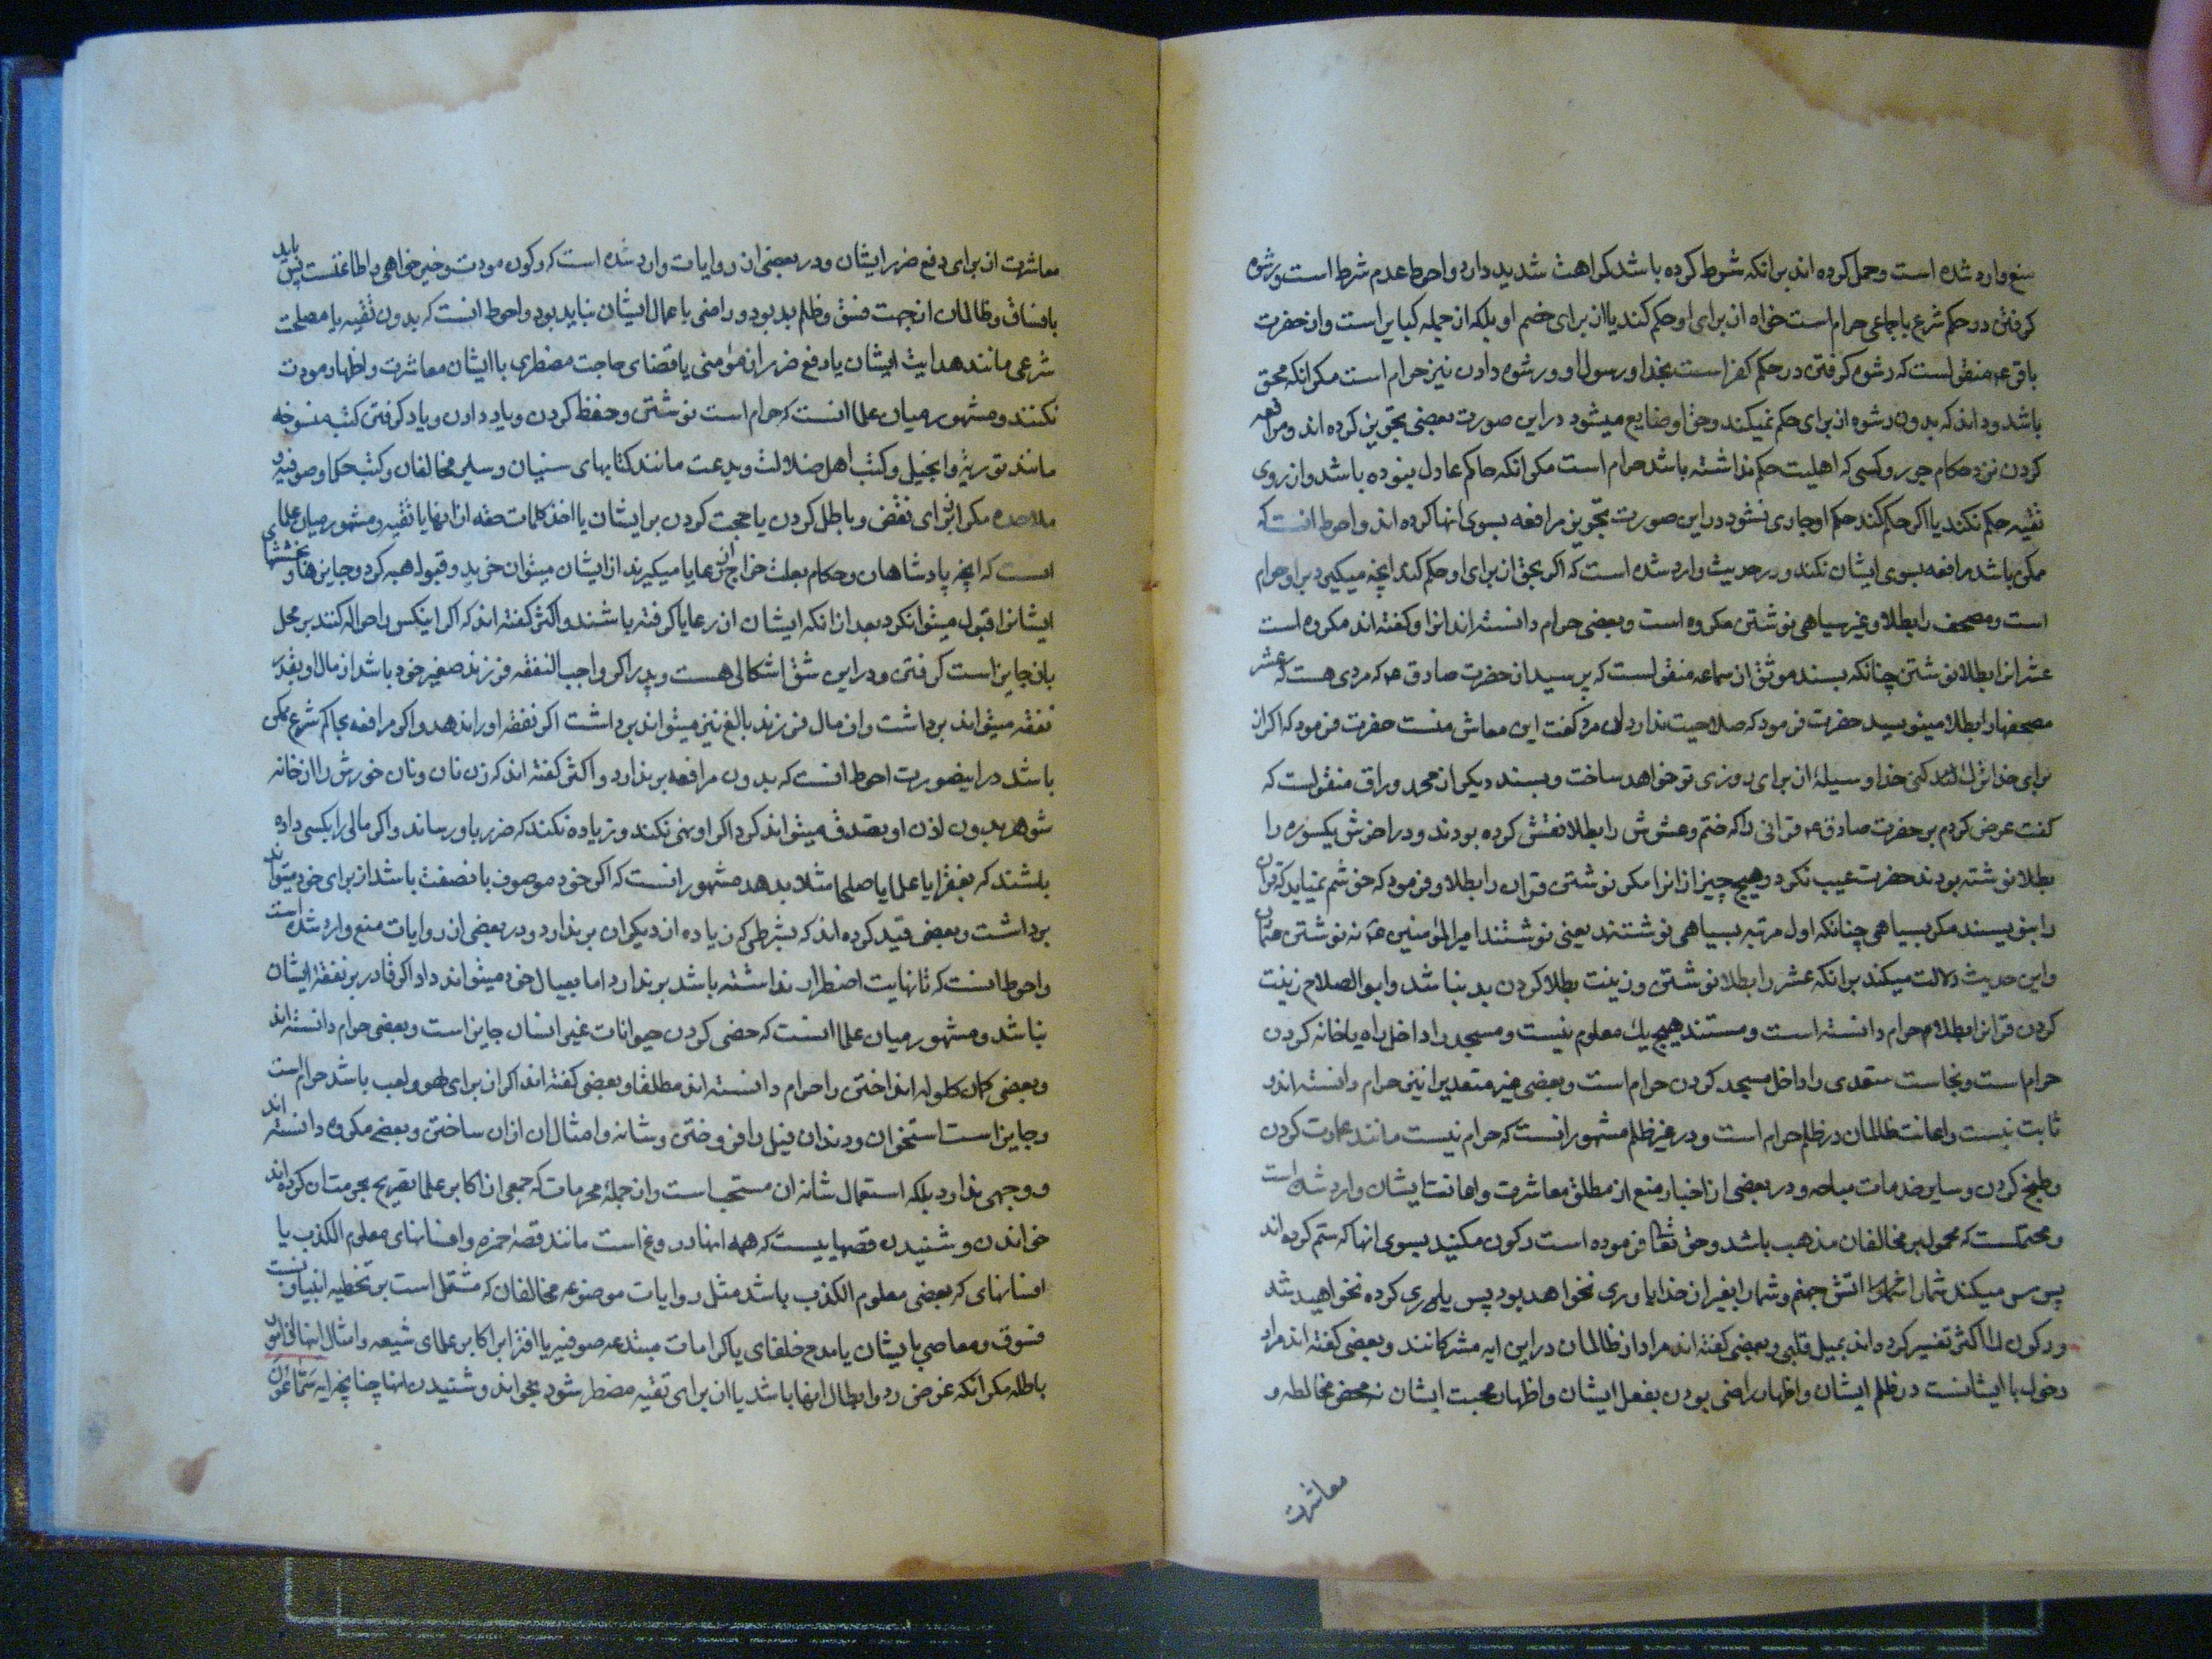 منع وارد شده است وحمل کرده اند برانکه شرط کرده باشد کراهت شدید دارد واحوط عدم شرط است ورشوه
کرفتن در حکم شرع باجماعی حرام است خواه از برای او حکم کند یا از برای خصم او بلکه از جمله کبایر است واز حضرت
باقر ع منقولست که رشوه کرفتن در حکم کفر است بخدا ورسول او ورشوه دادن نیز حرام است مکر انکه محق
باشد وداند که بدون رشوه از برای حکم نمیکند وحق او ضایع میشود در این صورت بعضی تجویز کرده اند ومرافعه
کردن نزد حکام جور وکسی که اهلیت حکم نداشته باشد حرام است مکر انکه حاکم عادل نبوده باشد واز روی
تقیه حکم نکند یا اکر حکم کند حکم او جاری نشود در این صورت تجویز مرافعه بسوی انها کرده اند واحوط انست که
ممکن باشد مرافعه بسوی ایشان نکند ودر حدیث وارد شده است که اکر بحق از برای او حکم کند انچه میکیرد بر او حرام
است ومصحف را بطلا وغیر سیاهی نوشتن مکروه است وبعضی حرام دانسته اند انرا وکفته اند مکروه است
عشر انرا بطلا نوشتن چنانکه بسند موثق از سماعه منقولست که پرسید از حضرت صادق ع که مردی هست که عشر
مصحفها را بطلا مینویسد حضرت فرمود که صلاحیت ندارد ان مرد کفت این معاش منست حضرت فرمود که اکر از
برای خدا ترک کنی خدا وسیلهٔ از برای روزی تو خواهد ساخت وبسند دیکر از محمد وراق منقولست که
کفت عرض کردم بر حضرت صادق ع قرانی را که ختم وعشرش را بطلا نقش کرده بودند ودر اخرش یکسوره را
بطلا نوشته بودند حضرت عیب نکرد وهیچ چیز از انرا مکر نوشتن قران را بطلا وفرمود که خوشم نمیاید که قران
را بنویسند مکر بسیاهی چنانکه اول مرتبه بسیاهی نوشتند یعنی نوشتند امیر المؤمنین ع نه نوشتن عثمان
واین حدیث دلالت میکند برانکه عشر را بطلا نوشتن وزینت بطلا کردن بد نباشد وابو الصلاح زینت
کردن قرانرا بطلا حرام دانسته است ومستند هیچ یک معلوم نیست ومسجد را داخل راه یا خانه کردن
حرام است ونجاست متعدی را داخل مسجد کردن حرام است وبعضی غیر متعدیرا نیز حرام دانسته اند و
ثابت نیست واعانت ظالمان در ظلم حرام است ودر غیر ظلم مشهور انست که حرام نیست مانند عمارت کردن
وطبخ کردن وسایر خدمات مباحه ودر بعضی از اخبار منع از مطلق معاشرت واعانت ایشان وارد شده است
ومحتملست که محمول بر مخالفان مذهب باشد وحق تعالی فرموده است رکون مکنید بسوی انها که ستم کرده اند
پس مس میکند شما را اتش جهنم وشما را بغیر از خدا یاوری نخواهد بود پس یاری کرده نخواهید شد
ورکون را اکثر تفسیر کرده اند بمیل قلبی وبعضی کفته اند مراد از ظالمان در این ایه مشرکانند وبعضی کفته اند مراد
دخول با ایشانست در ظلم ایشان واظهار راضی بودن بفعل ایشان واظهار محبت ایشان نه محض مخالطه و
معاشرت
معاشرت از برای دفع ضرر ایشان ودر بعضی از روایات وارد شده است که رکون مودت وخیر خواهی واطاعتست پس باید
با فساق وظالمان از جهت فسق وظلم بد بود وراضی باعمال ایشان نباید بود واحوط انست که بدون تقیه یا مصلحت
شرعی مانند هدایت ایشان یا دفع ضرر از مؤمنی یا قضای حاجت مضطری با ایشان معاشرت واظهار مودت
نکنند ومشهور میان علما انست که حرام است نوشتن وحفظ کردن ویاد دادن ویاد کرفتن کتب منسوخه
مانند توریة وانجیل وکتب اهل ضلالت وبدعت مانند کتابهای سنیان وسایر مخالفان وکتب حکما وصوفیه و
ملاحده مکر از برای نقض وباطل کردن یا حجت کردن بر ایشان یا اخذ کلمات حقه از انها یا تقیه ومشهور میان علما
است که انچه پادشاهان وحکام بعلت خراج از رعایا میکیرند از ایشان میتوان خرید وقبول هبه کرد وجایزها وبخششهای
ایشانرا قبول میتوانکرد بعد از انکه ایشان از رعایا کرفته باشند واکثر کفته اند که اکر اینکس را حواله کنند بر محل
بان جایز است کرفتن ودر این شق اشکالی هست وپدر اکر واجب النفقه فرزند صغیر خود باشد از مال او بقدر
نفقه میتواند برداشت واز مال فرزند بالغ نیز میتواند برداشت اکر نفقه اورا ندهد واکر مرافعه بحاکم شرع ممکن
باشد در اینصورت احوط انست که بدون مرافعه بر ندارد واکثر کفته اند که زن نان ونان خورش را از خانه
شوهر بدون اذن او تصدق میتواند کرد اکر او نهی نکند وزیاده نکند که ضرر باو رساند واکر مالی را بکسی داده
باشند که بفقرا یا علما یا صلحا مثلا بدهد مشهور انست که اکر خود موصوف بانصفت باشد از برای خود میتواند
برداشت وبعضی قید کرده اند که بشرطی که زیاده از دیکران بر ندارد ودر بعضی از روایات منع وارد شده است
واحوط انست که تا نهایت اضطرار نداشته باشد بر ندارد اما بعیال خود میتواند داد اکر قادر بر نفقهٔ ایشان
نباشد ومشهور میان علما انست که خصی کردن حیوانات غیر انسان جایز است وبعضی حرام دانسته اند
وبعضی کمان کلوله انداختن را حرام دانسته اند مطلقا وبعضی کفته اند اکر از برای لهو ولعب باشد حرام است
وجایز است استخوان ودندان فیل را فروختن وشانه وامثال ان از ان ساختن وبعضی مکروه دانسته اند
ووجهی ندارد بلکه استعمال شانه ان مستحب است واز جملهٔ محرمات که جمعی از اکابر علما تصریح بحرمت ان کرده اند
خواندن وشنیدن قصهاییست که همه انها دروغ است مانند قصهٔ حمزه وافسانهای معلوم الکذب یا
افسانهای که بعضی معلوم الکذب باشد مثل روایات موضوعه مخالفان که مشتمل است بر تخطیه انبیا ونسبت
فسوق ومعاصی بایشان یا مدح خلفای یا کرامات مبتدعه صوفیه یا افترا بر اکابر علمای شیعه وامثال انها
باطله مکر انکه غرض رد وابطال انها باشد یا از برای تقیه مضطر شود بخواندن وشنیدن انها چنانچه ایه سماعون